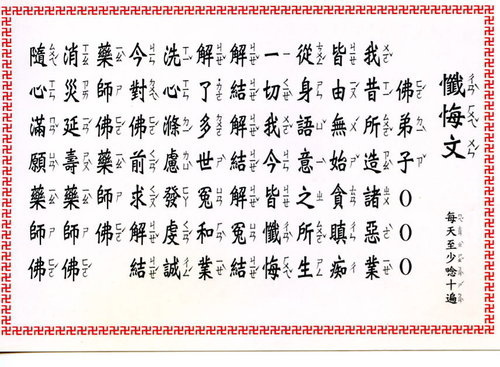 懺悔文
每天至少唸十遍
佛弟子OOO
我昔所造諸惡業
皆由無始貪瞋痴
從身語意之所生
一切我今皆懺悔
解結解結解冤結
解了多世冤和業
洗心滌慮發虔誠
今對佛前求解結
藥師佛藥師佛
消災延壽藥師佛
隨心滿願藥師佛